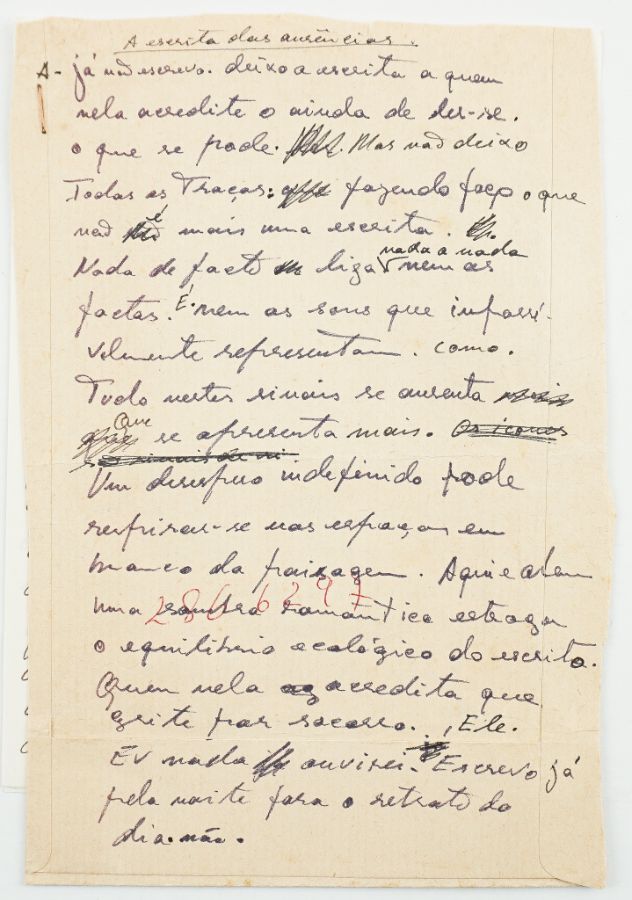 A escrita das ausências.
A - já não escrevo. deixo a escrita a quem
nela acredite o ainda de ler-se.
o que se pode. Mas não deixo
Todas as Traças: fazendo faço o que
não é mais uma escrita.
nada a nada
Nada de facto liga nem as
factas. É. nem as sons que impossi-
velmente representam. como.
Tudo nestes sinais se ausenta mais
Que se apresenta mais. Os ícones
os sinais de mi
Um desenho indefinido pode
respirar-se nos espaços em
branco da paisagem. Aqui e alem
uma sombra romantica estraga
286 6297
o equilibrio ecológico do escrito.
Quem nela acredita que
grite por socorro. , Ele.
EU nada ouvirei. Escrevo já
pela noite fora o retrato do
dia. não.